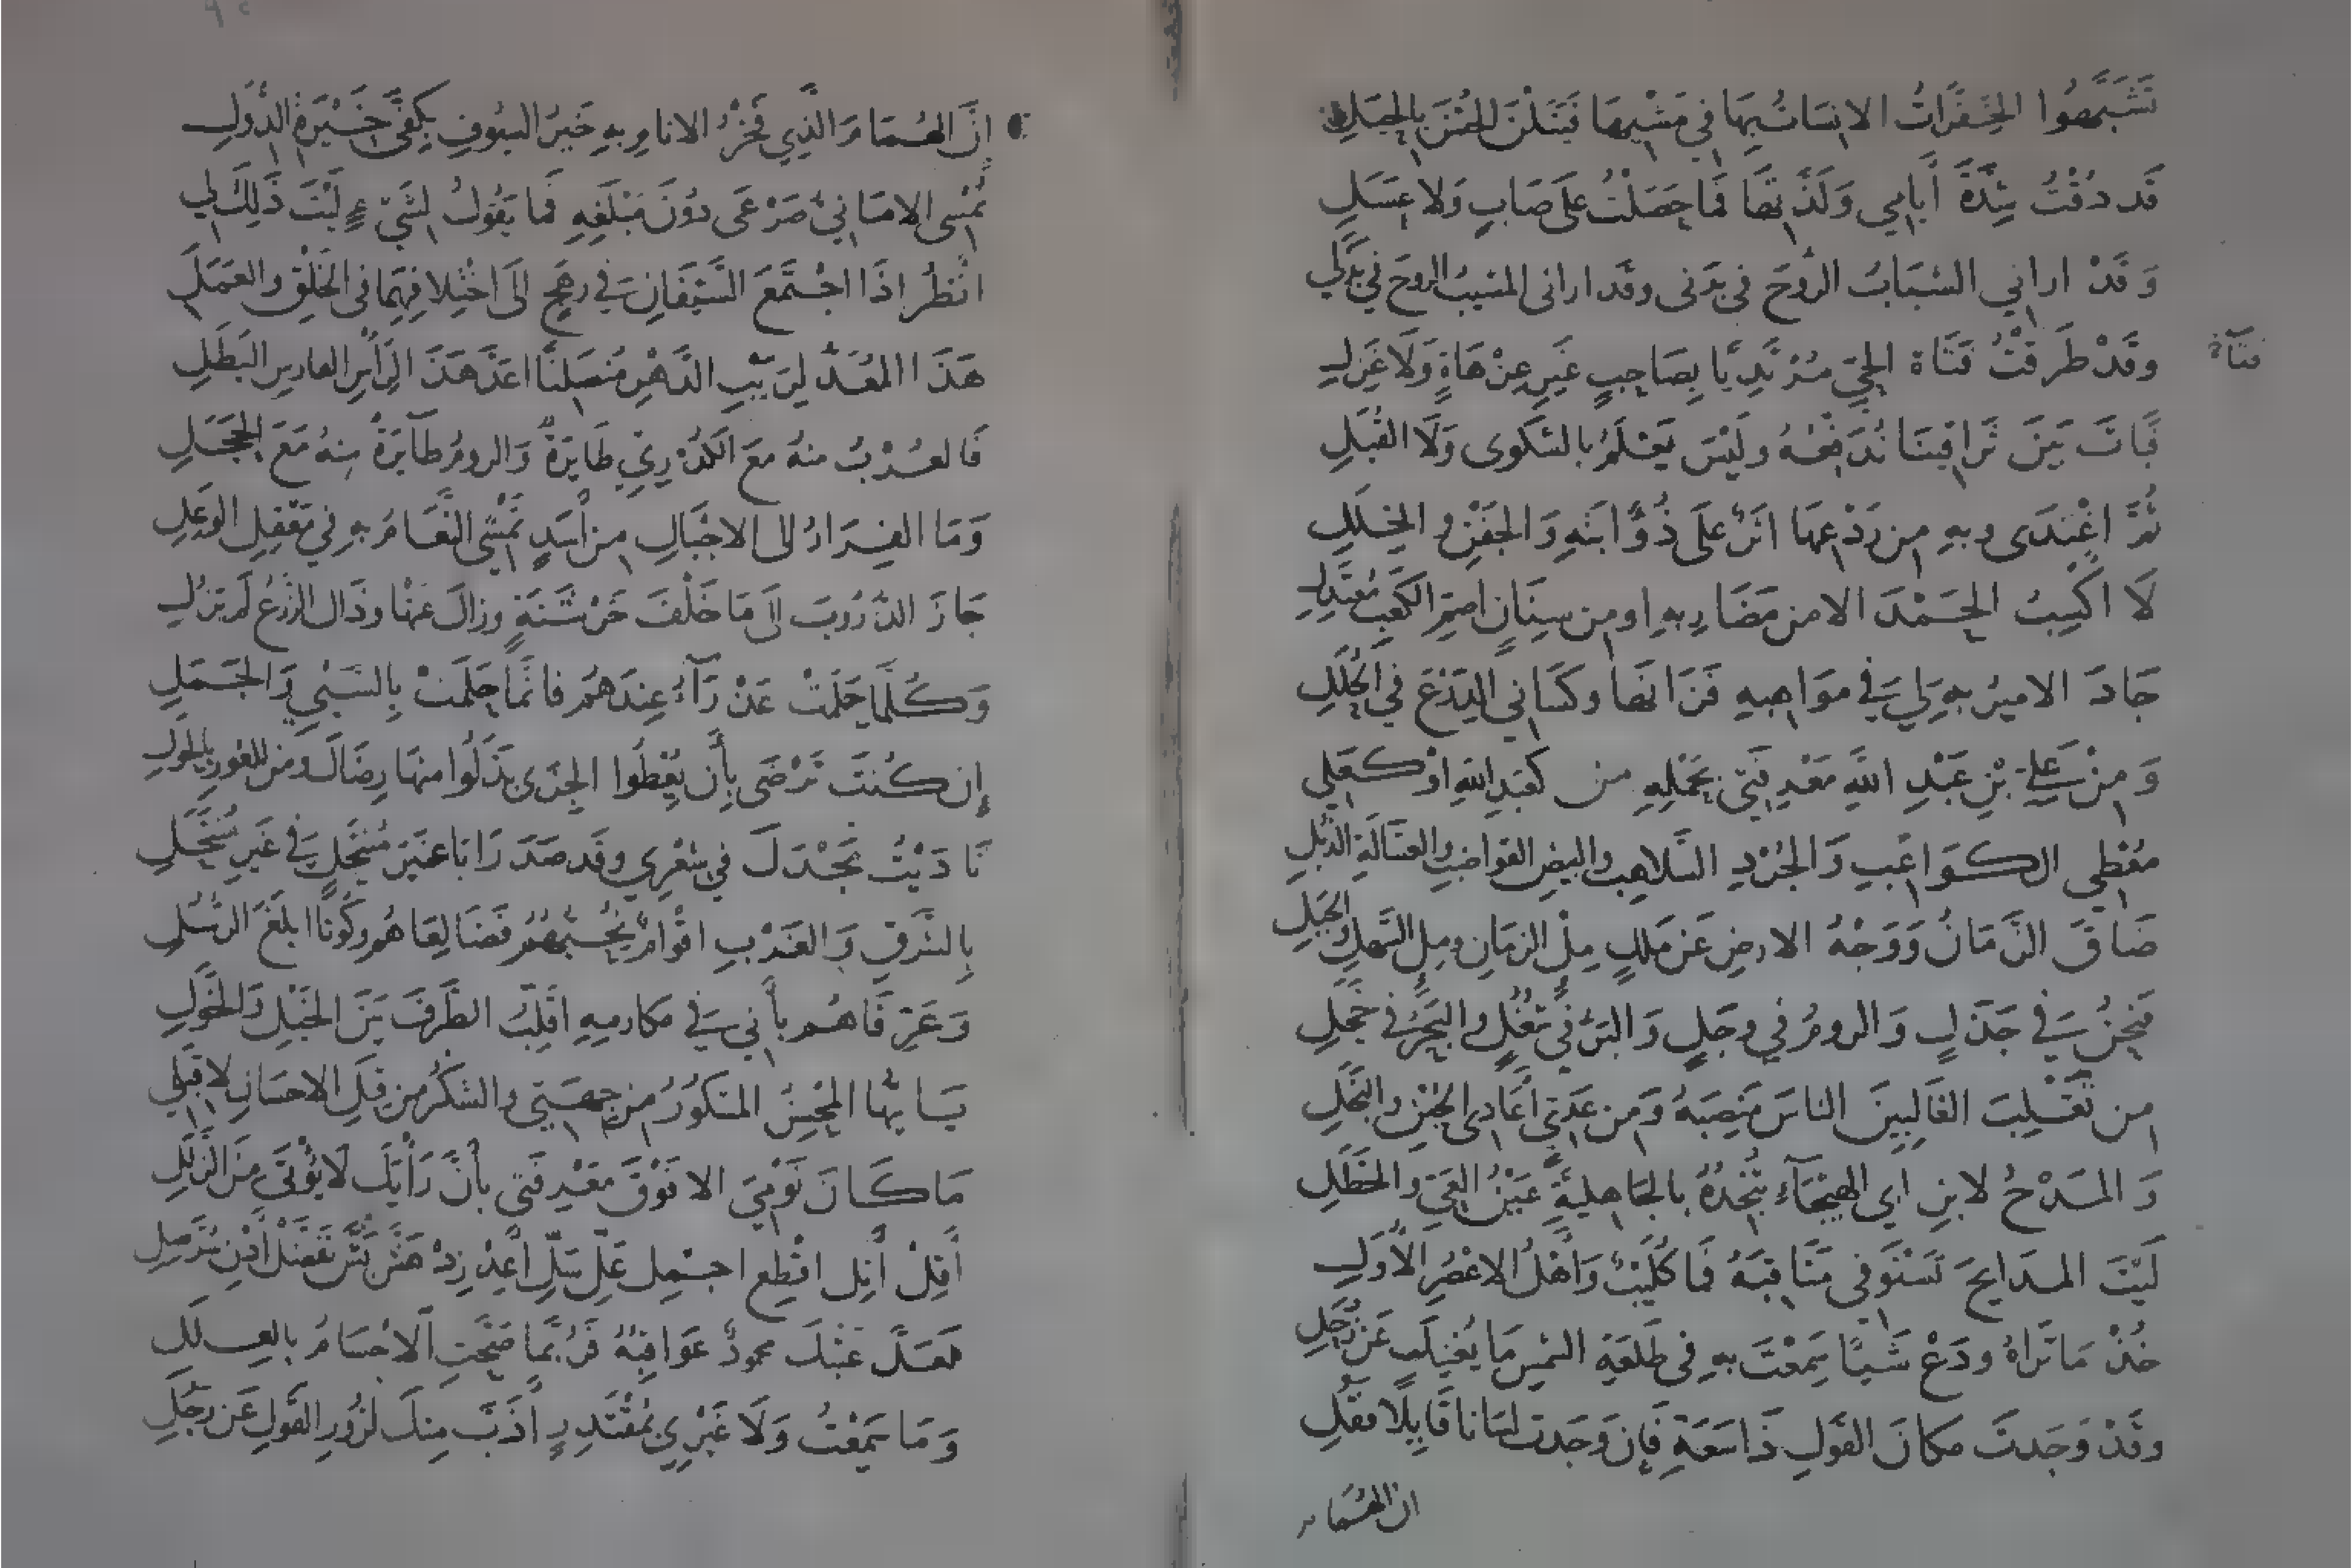 تَشَبَّهُوا الخَفِرَاتُ الانِسَاتُ بِهَا في مَشْيِهَا فَيَنَلْنَ الحُسْنَ بِالحِيَلِ
قَد ذُقْتُ شِدَّةَ أَيَّامِي وَلَذَّتَهَا فَمَا حَصَلْتُ عَلَى صَابٍ وَلا عَسَلِ
وَقَدْ اراني الشبَابُ الرُّوحَ في بَدَنى وقَد ارانى المشيبُ الروحَ في بَدَلي
فتاة
وقَدْ طَرَقْتُ فتَاة الحيِّ مُرْتَدِيًا بِصَاحِبٍ غَيرِ عِزْهَاةٍ وَلَا غَزِلِ
فَبَاتَ بَينَ تَرَاقِينَا نُدَفِّعُهُ ولَيْسَ يَعْلَمُ بالشكوى وَلَا القُبَلِ
ثُمَّ اغْتَدَى وبهِ مِن رَدْعِهَا اثَرٌ عَلَى ذُؤَابَتِهِ وَالجَفْنِ والخِلَلِ
لَا اكْسِبُ الحَمْدَ الا من مَضَارِبهِ او مِن سِنَانٍ اصمِّ الكَعْبِ مُعْتَدِلِ
جَادَ الاميرُ بهِ لِي في مَوَاهِبهِ فَزَانَها وكَسَاني الدِرْعَ في الحُلَلِ
وَمِنْ عَلِيّ بْنِ عَبْدِ اللهِ مَعْرِفَتي بِحَمْلِهِ من كَعَبدِ اللهِ اوْ كَعَلِي
مُعْطِي الكَوَاعِبِ وَالجُرْدِ السَّلاهِبِ والبيضِ القواضبِ والعَسَّالَةِ الذُّبُلِ
ضَاقَ الزَّمَانُ وَوَجْهُ الارضِ عَن مَلِكٍ مِلْءِ الزمَانِ ومِلءِ السَّهلِ والجَبَلِ
فَنحنُ في جَذَلٍ وَالرومُ في وجَلٍ وَالبَرُّ في شُغُلٍ والبَحْرُ في خَجَلِ
مِن تَغْلِبَ الغَالِبِينَ الناسَ مَنصِبَهُ وَمِن عَدِيٍّ أَعَادِى الجُبْنِ والبَخَلِ
وَالمَدْحُ لابنِ ابي الهيجَآءِ تُنْجِدُهُ بالجَاهِليةِ عَيْنُ العيِّ والخَطَلِ
لَيْتَ المدَايحَ تَسْتَوفي مَنَاقِبَهُ فَمَا كُلَيْبٌ وَأَهْلُ الاعْصُرِ الأُوَلِ
خُذْ مَا تَرَاهُ ودَعْ شَيئًا سَمِعْتَ بهِ في طَلْعَةِ الشمسِ مَا يُغنِيكَ عَن زُحَلِ
وقَدْ وَجَدتَ مكانَ القَولِ ذَا سَعَةٍ فَإن وَجَدتَ لسَانا قَايِلًا فقُلِ
ان الهُمَام
إنَّ الهُمَامَ الذِي فَخْرُ الانامِ بهِ خَيرُ السيُوفِ بِكَفَّي خَيْرَةِ الدُّوَلِ
تُمْسِى الامَانيُّ صَرْعَى دُونَ مَبْلَغِهِ فَما يَقُولُ لشَيْءٍ لَيْتَ ذَلِكَ لِي
انْظُر اذَا اجْتَمَعَ السَّيْفَانِ في رهَجٍ الَى اخْتِلافِهِمَا في الخَلْقِ والعَمَلِ
هَذَا المُعَدُّ لِرَيْبِ الدَّهْرِ مُنصَلِتًا اعَدَّ هَذَا لِرَأْسِ الفارسِ البَطَلِ
فَالعُرْبُ منهُ معَ الكُدْرِيِّ طَايِرَةٌ وَالرومُ طَآيِرَةٌ مِنهُ مَعَ الحجَلِ
وَمَا الفِرَارُ الى الاجْبَالِ مِن أَسَدٍ تَمْشِي النَّعَامُ بهِ في مَعْقِلِ الوَعِلِ
جَازَ الدُّرُوبَ الَى مَا خَلْفَ خَرْشَنَةٍ وزَالَ عَنْهَا وذَاكَ الرَّوْعُ لَم يَزُلِ
وَكُلَّمَا حَلَمَتْ عَذْرَآءُ عِندَهُمُ فانَّمَا حَلَمَتْ بِالسَّبْيِ وَالجَمَلِ
إِن كُنتَ تَرْضَى بِأَن يُعْطُوا الجِزَى بَذَلُوا منهَا رِضَاكَ ومَن للعُورِ بالحَوَلِ
نَادَيْتُ مَجْدَكَ في شِعْرِي وقَد صَدَرَا يَا غَيْرَ مُنْتَحَلٍ في غَيرِ مُنْتَحَلِ
بِالشرْقِ وَالغَرْبِ اقْوَامٌ نُحِبُّهُمُ فَطَالِعَاهُم وكُونَا ابلَغَ الرُّسُلِ
وَعَرّفَاهُم بأَني في مكارمِهِ اقَلِّبُ الطَّرْفَ بَينَ الخَيْلِ وَالخَوَلِ
يَا ايُّها المحْسِنُ المشكُورُ مِن جِهَتِي والشكْرُ مِن قِبَلِ الاحسَانِ لا قِبَلِي
مَا كَانَ نَوْمِيَ الا فَوْقَ مَعْرِفَتي بأَنَّ رَأْيَكَ لَا يُؤْتَى مِنَ الزَّلَلِ
أَقِلْ أَنِل اقْطِعِ احمِل عَلِّ سَلِّ أَعِدْ زِدْ هَشَّ بَشَّ تَفَضَّلْ أَدْنِ سُرَّ صِلِ
لَعَلَّ عَتْبَكَ محمودٌ عَوَاقِبُهُ فَرُبَّمَا صَحَّتِ الاجْسَامُ بالعِلَلِ
وَمَا سَمِعْتُ وَلَا غَيْرِي بمُقْتَدِرٍ أَذَبَّ مِنكَ لزُورِ القَولِ عَن رَجُلِ